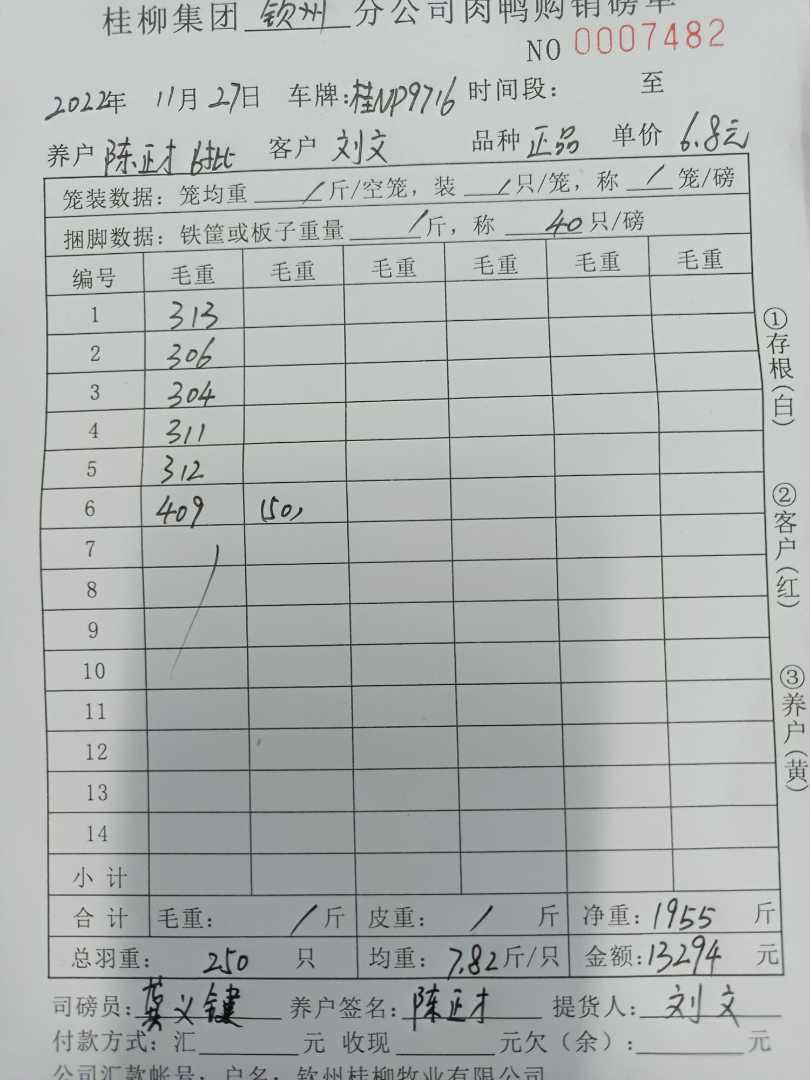 桂柳集团 钦州 分公司肉鸭购销磅单
NO 0007482
2022年 11月27日 车牌:桂NP9716 时间段: 至
养户 陈正才 6批 客户 刘文 品种 正品 单价 6.8元
笼装数据: 笼均重 / 斤/空笼, 装 / 只/笼, 称 / 笼/磅
捆脚数据: 铁筐或板子重量 / 斤, 称 40 只/磅
编号 毛重 毛重 毛重 毛重 毛重 毛重
1 313
2 306
3 304
4 311
5 312
6 409 (50)
7
8
9
10
11
12
13
14
小计
合计 毛重: / 斤 皮重: / 斤 净重: 1955 斤
总羽重: 250 只 均重: 7.82斤/只 金额:13294 元
司磅员: 莫义键 养户签名: 陈正才 提货人: 刘文
付款方式: 汇 元 收现 元欠(余): 元
公司汇款帐号: 户名: 钦州桂柳牧业有限公司
①存根(白)
②客户(红)
③养户(黄)